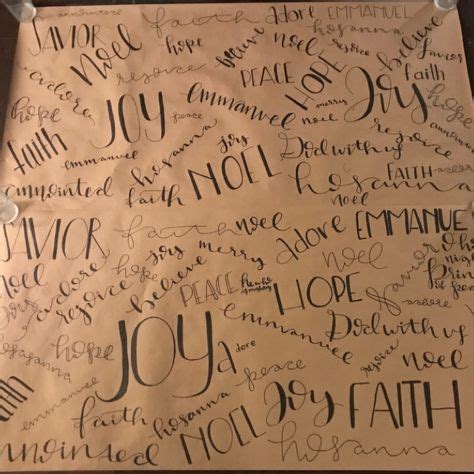 SAVIOR faith adore EMMANUEL
Noel hope believe noel rejoice hosanna believe Savior
adore rejoice PEACE HOPE faith
hope JOY peace emmanuel merry noel Joy hope
faith emmanuel hosanna joy God with us rejoice emmanuel
annointed faith NOEL hosanna FAITH adore
noel
SAVIOR faith noel adore EMMANUE
noel adore joy merry noel Savior
Joy rejoice believe PEACE HOPE adore
hosanna hope JOY adore emmanuel God with us
faith emmanuel peace rejoice noel
faith hosanna Joy FAITH
annointed NOEL hosanna